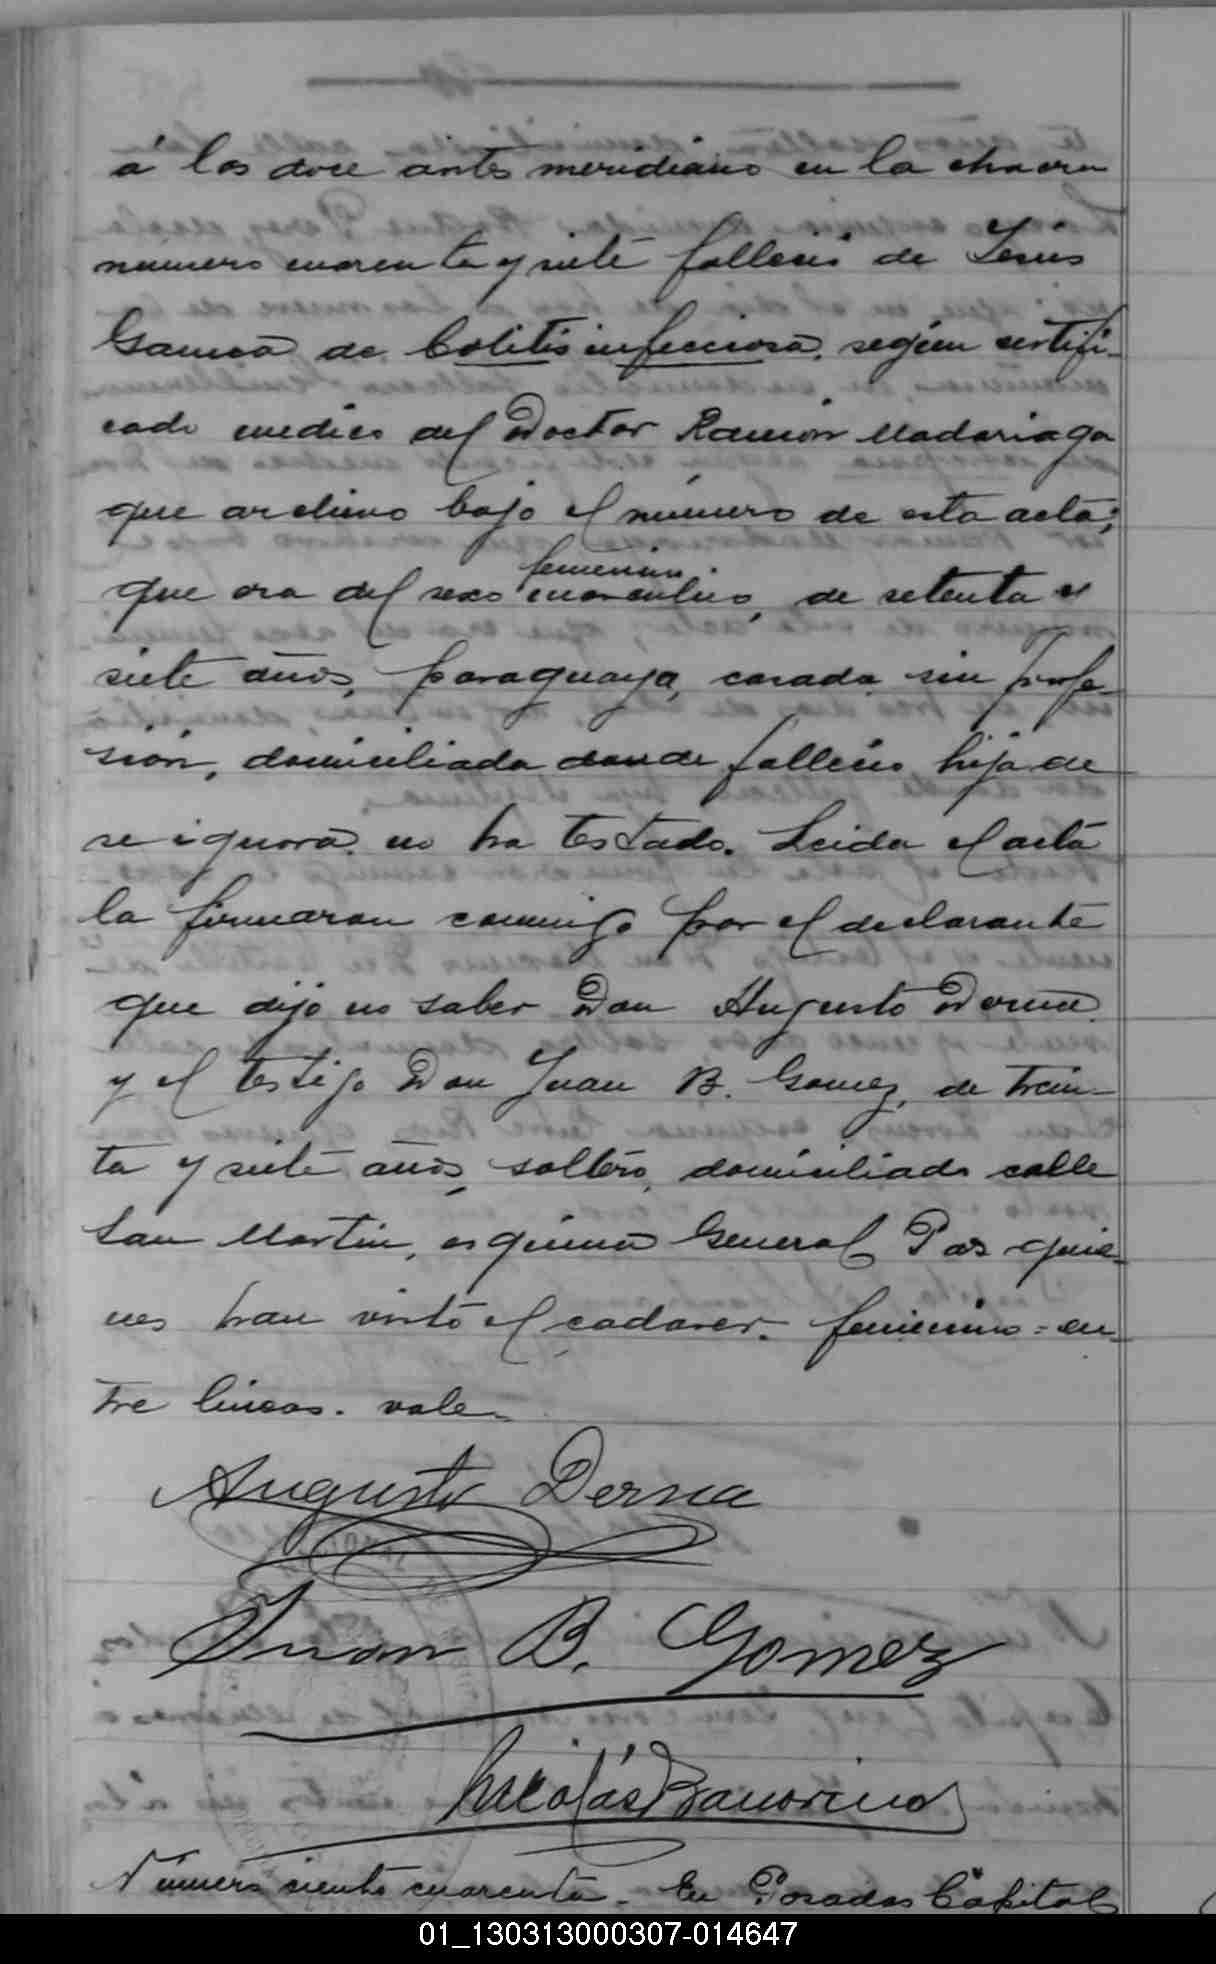 á las doce antes meridiano en la chacra
numero cuarenta y siete fallecio de Jesús
Gamea de Colitis infecciosa, según certifi-
cado medico del Doctor Ramón Madariaga
que archivo bajo el número de esta acta;
femenino
que era del sexo masculino, de setenta y
siete años, paraguaya, casada sin profe-
sión, domiciliada donde fallecio hija de
se ignora no ha testado. Leida el acta
la firmaron conmigo por el declarante
que dijo no saber Don Augusto Derna
y el testigo Don Juan B. Gomez, de trein-
ta y siete años, soltero, domiciliado calle
San Martin, esquina General Paz quie-
nes han visto el cadaver. femenino = en-
tre lineas. vale-
Augusto Derna
Juan B. Gomez
Nicolás
Número ciento cuarenta. En Posadas Capital
01_130313000307-014647